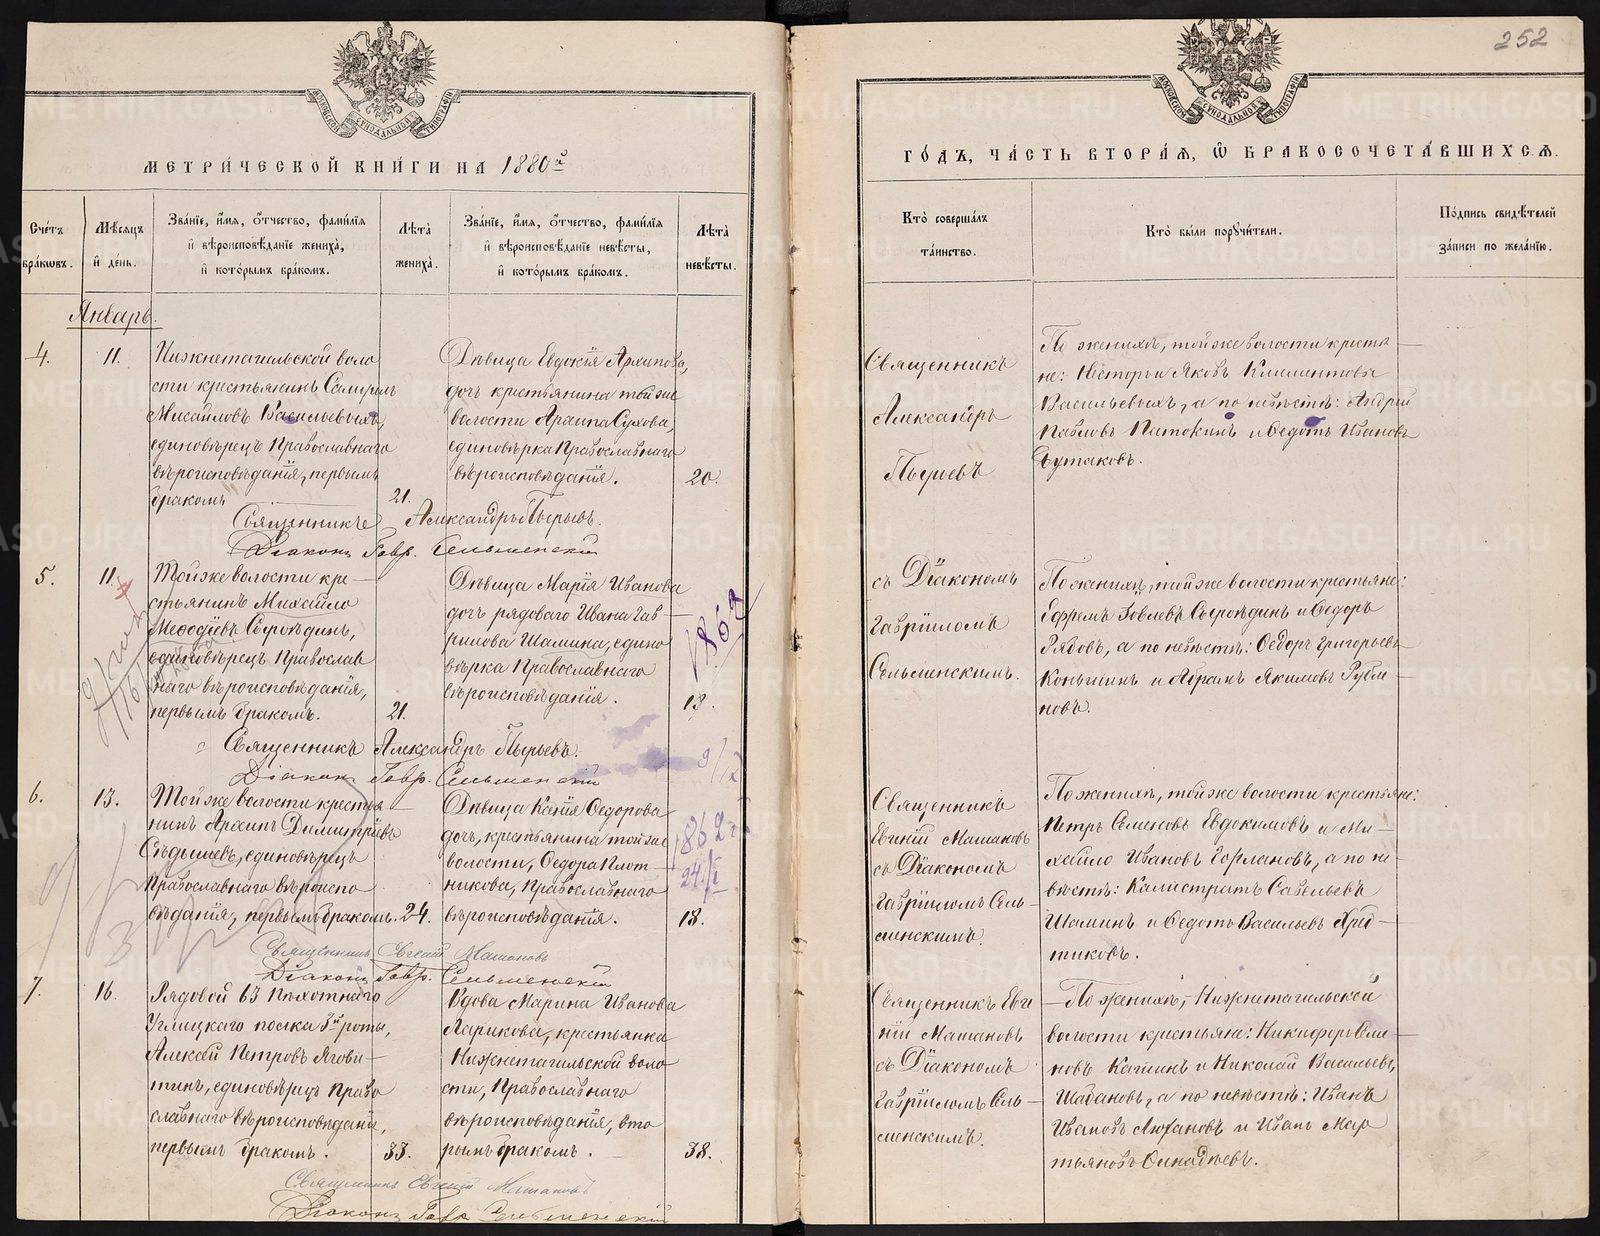 252
МЕТРИ́ЧЕСКОЙ КНИ́ГИ НА 1880й
ГО́ДЪ, ЧА́СТЬ ВТОРА́Ѧ, Ѽ БРАКОСОЧЕТА́ВШИХСѦ.
Сче́тъ бра́кѡвъ.
Мѣ́сѧцъ и҆ де́нь.
Зва́нїе, и҆́мѧ, ѻ҆́тчество, фами́лїѧ и҆ вѣроисповѣ́данїе жениха̀, и҆ кото́рымъ бра́комъ.
Лѣ́та жениха̀.
Зва́нїе, и҆́мѧ, ѻ҆́тчество, фами́лїѧ и҆ вѣроисповѣ́данїе невѣ́сты, и҆ кото́рымъ бра́комъ.
Лѣ́та невѣ́сты.
Кто̀ соверша́лъ та́инство.
Кто̀ бы́ли порꙋчи́тели.
По́дпись свидѣ́телей за́писи по жела́нїю.
Январь.
4.
11.
Нижнетагильской воло
сти крестьянинъ
Мисаиловъ Васильевыхъ,
единовѣрецъ Православнаго
вѣроисповѣданія, первымъ
бракомъ
21.
Дѣвица Евдокія Архипова,
дочь крестьянина той же
волости Архипа Сухова,
единовѣрка Православнаго
вѣроисповѣданія.
20.
Священникъ
Александръ
Пырьевъ
По женихѣ, той же волости крестья
не: Нестеръ и Яковъ Климентовы
Васильевыхъ, а по невѣстѣ: Андрей
Павловъ Пиюкинъ и Федотъ Ивановъ
Бутаковъ.
Священникъ Александръ Пырьевъ.
Діаконъ Гавр. Сельменскій
5.
11.
Той же волости кре-
стьянинъ Михаило
Меѳодіевъ Сыроѣдинъ,
единовѣрецъ Православ
наго вѣроисповѣданія,
первымъ бракомъ.
21.
Дѣвица Марія Иванова
дочь рядоваго Ивана Гав-
рилова Шамина, едино
вѣрка Православнаго
вѣроисповѣданія.
18.
1862
съ Діакономъ
Гавріиломъ
Сельменскимъ.
По женихѣ, той же волости крестьяне:
Ефремъ Іовлевъ Сыроѣдинъ и Федоръ
Рябовъ, а по невѣстѣ: Федоръ Григорьевъ
Коньшинъ и Абрамъ Якимовъ Рубле-
новъ.
Священникъ Александръ Пырьевъ.
Діаконъ Гавр. Сельменскій
6.
13.
Той же волости крестья-
нинъ Архипъ Димитріевъ
Сѣдышевъ, единовѣрецъ
Православнаго вѣроиспо
вѣданія, первымъ бракомъ.
24.
Дѣвица Капія Федорова
дочь, крестьянина той же
волости, Федора Плот-
никова, Православнаго
вѣроисповѣданія.
18.
1862
24/I
Священникъ
Евгеній Машановъ
съ Діакономъ
Гавріиломъ Сель-
менскимъ.
По женихѣ, той же волости крестьяне:
Петръ Семеновъ Евдокимовъ и Ми-
хаило Ивановъ Горлановъ, а по не-
вѣстѣ: Калистратъ Савельевъ
Шаминъ и Федотъ Васильевъ Хрѣб-
тиковъ.
Священникъ Евгеній Машановъ
Діаконъ Гавр. Сельменскій
7.
16.
Рядовой 63 Пѣхотнаго
Углицкаго полка 3й роты,
Алексѣй Петровъ Ягови-
тинъ, единовѣрецъ Право
славнаго вѣроисповѣданія,
первымъ бракомъ.
33.
Вдова Марина Иванова
Ларикова, крестьянка
Нижнетагильской воло
сти, Православнаго
вѣроисповѣданія, вто
рымъ бракомъ.
38.
Священникъ Евге
ній Машановъ
съ Діакономъ
Гавріиломъ Сель-
менскимъ.
По женихѣ, Нижнетагильской
волости крестьяне: Никифоръ Семе-
новъ Капинъ и Николай Васильевъ
Шабановъ, а по невѣстѣ: Иванъ
Ивановъ Люхановъ и Иванъ Мар
тьяновъ
Священникъ Евгеній Машановъ
Діаконъ Гавр. Сельменскій
METRIKI.GASO-URAL.RU